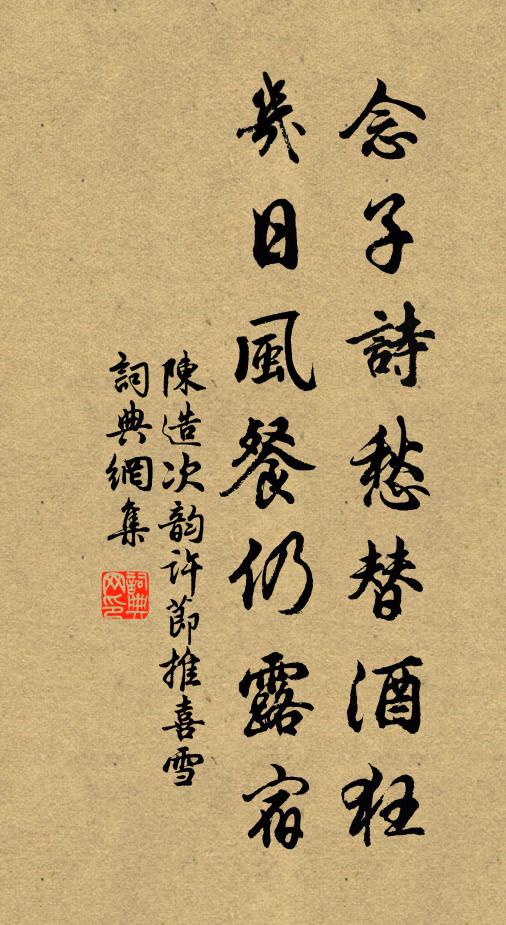 念子詩愁替酒狂
幾日風餐仍露宿
陳造次韵許節推喜雪
詞典網集
詞典网印